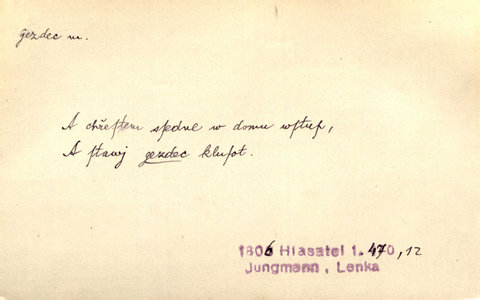 gezdec m.
A chřestem sjedne w domu wstup,
A stawj gezdec klusot.
1806 Hlasatel 1. 470, 12
Jungmann, Lenka